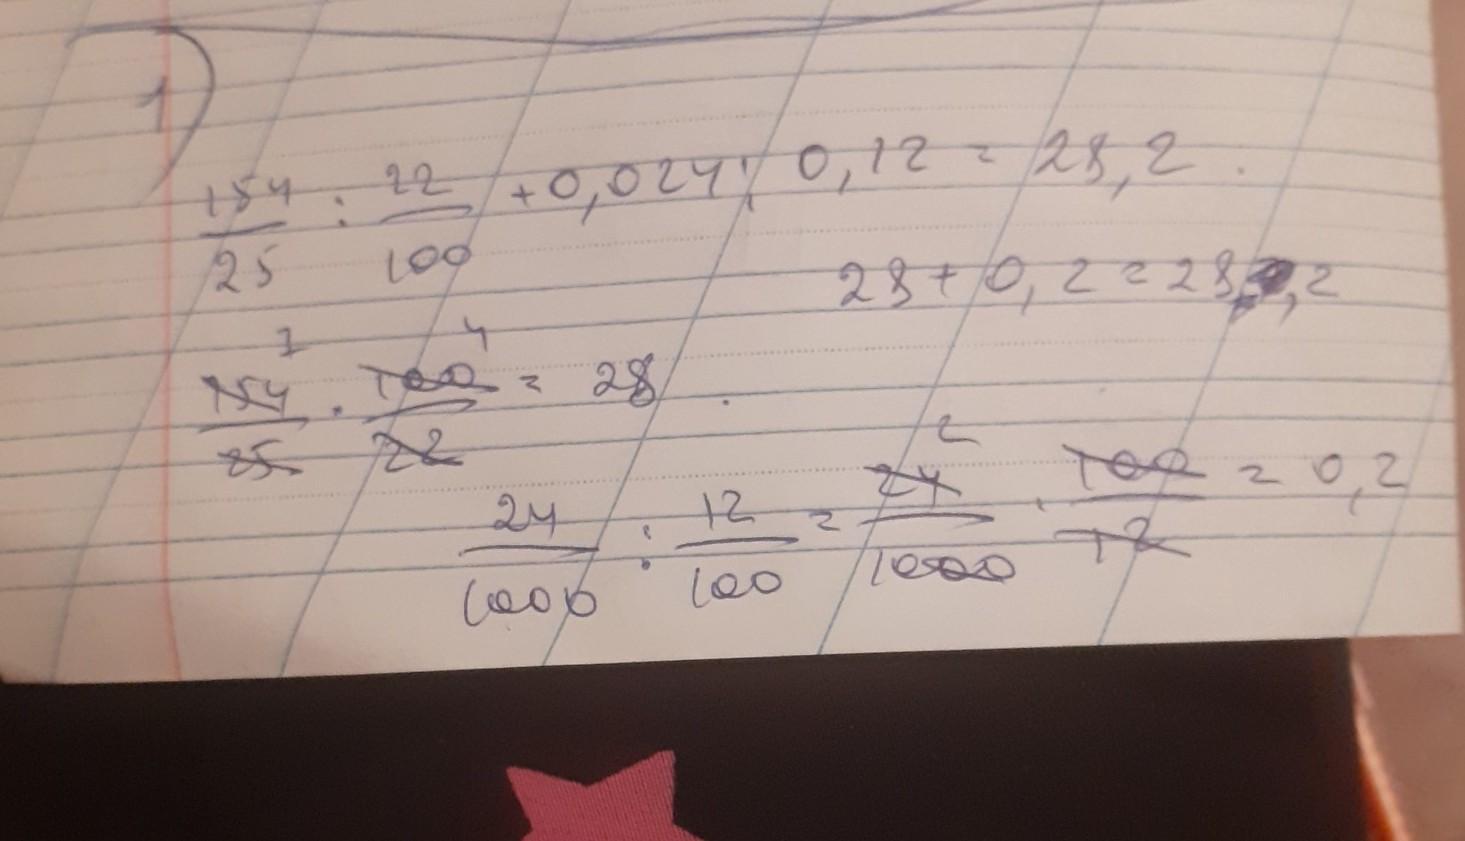 1)
154/25 : 22/100 + 0,024 : 0,12 = 28,2
28 + 0,2 = 28,2
154/25 · 100/22 = 28
7 4
24/1000 : 12/100 = 24/1000 · 100/12 = 0,2
2